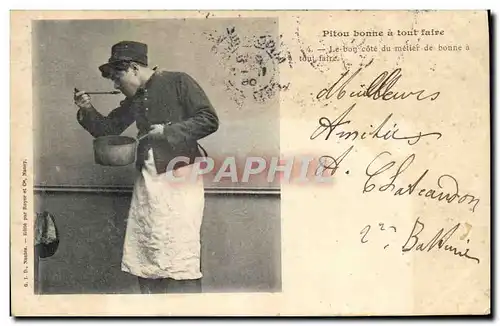 Pitou bonne à tout faire
4. — Le bon côté du métier de bonne à
tout faire.
Meilleurs
Amitiés
A. Chateaudon
2e Batterie
CPARAMA
G. I. D., Nantes. — Edité par Royer et Cie, Nancy.